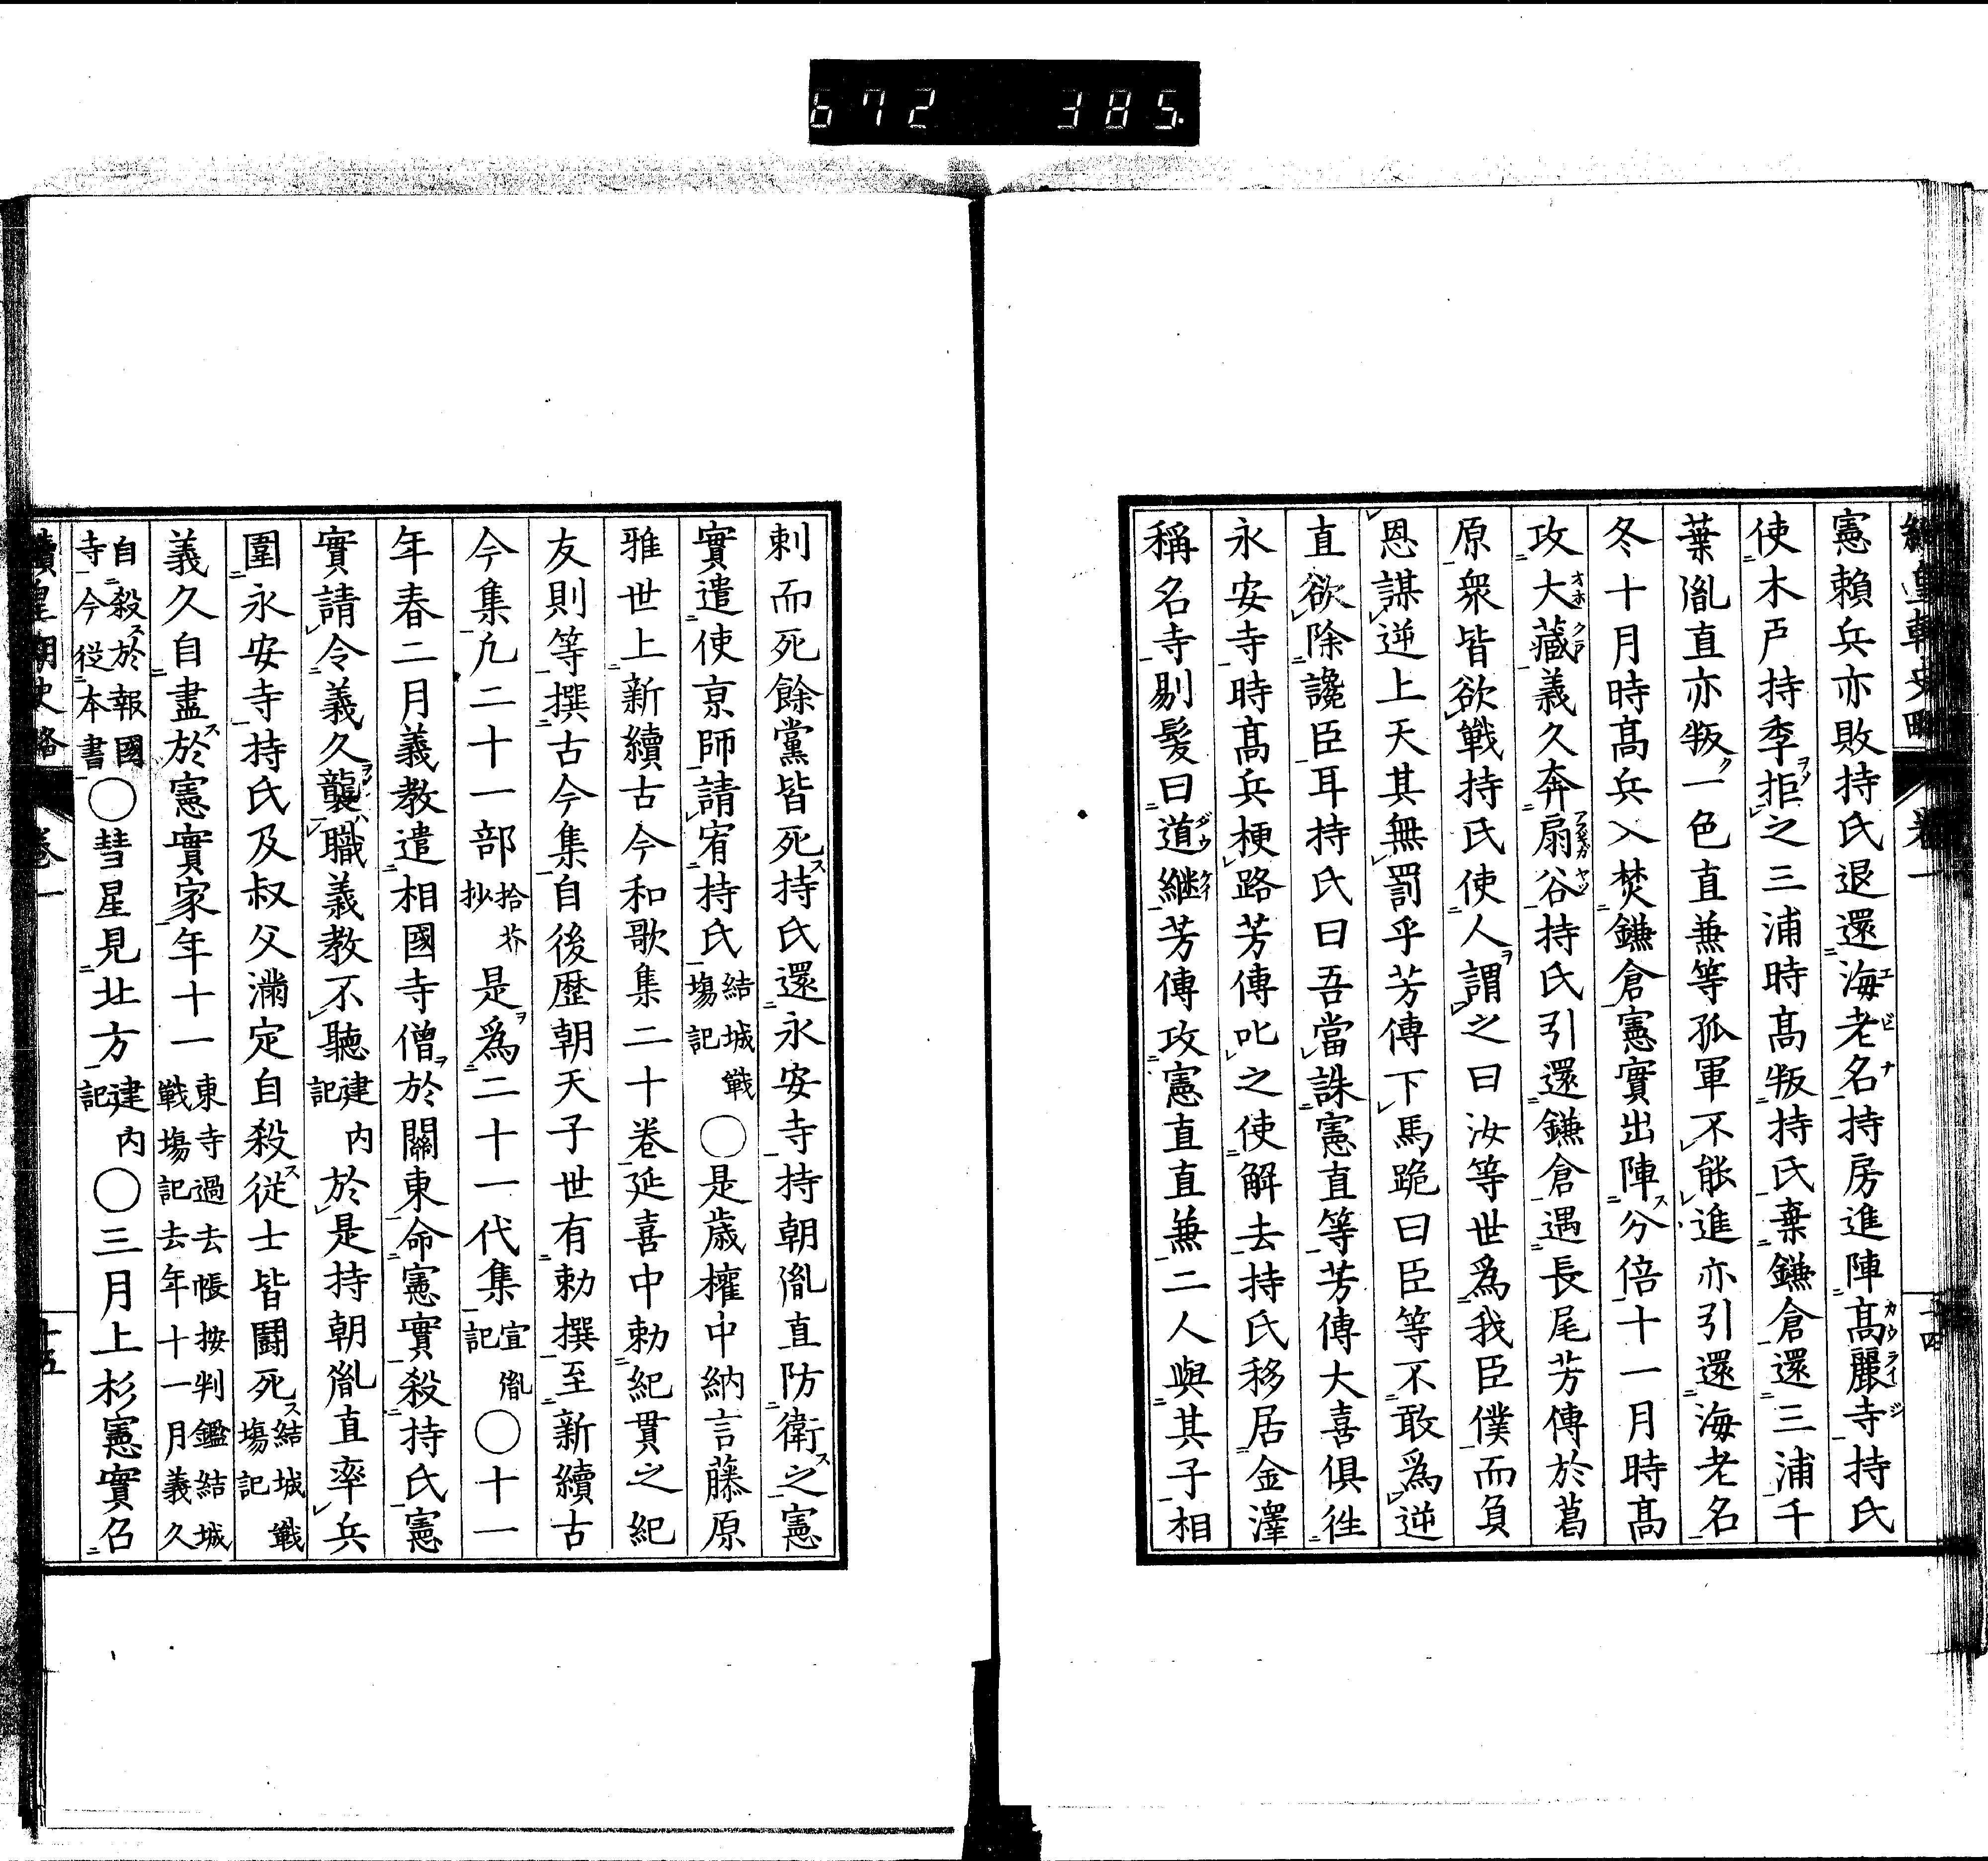 672 385
憲賴兵亦敗持氏退還海老名持房進陣高麗寺持氏
使木戸持季拒之三浦時高叛持氏棄鎌倉還三浦千
葉胤直亦叛一色直兼等孤軍不能進亦引還海老名
冬十月時高兵入焚鎌倉憲實出陣分倍十一月時高
攻大藏義久奔扇谷持氏引還鎌倉遇長尾芳傳於葛
原衆皆欲戰持氏使人謂之曰汝等世爲我臣僕而負
恩謀逆上天其無罰乎芳傳下馬跪曰臣等不敢爲逆
直欲除讒臣耳持氏曰吾當誅憲直等芳傳大喜俱徃
永安寺時高兵梗路芳傳叱之使解去持氏移居金澤
稱名寺剔髮曰道継芳傳攻憲直直兼二人與其子相
刺而死餘黨皆死持氏還永安寺持朝胤直防衛之憲
實遣使京師請宥持氏結城戰場記〇是歳權中納言藤原
雅世上新續古今和歌集二十卷延喜中勅紀貫之紀
友則等撰古今集自後歴朝天子世有勅撰至新續古
今集凡二十一部拾芥抄是爲二十一代集宣胤記〇十一
年春二月義教遣相國寺僧於關東命憲實殺持氏憲
實請令義久襲職義教不聽建内記於是持朝胤直率兵
圍永安寺持氏及叔父滿定自殺従士皆鬪死結城戰場記
義久自盡於憲實家年十一東寺過去帳按判鑑結城戰場記去年十一月義久
自殺於報國寺今従本書〇彗星見北方建内記〇三月上杉憲實召
續皇朝史略 卷一 十五